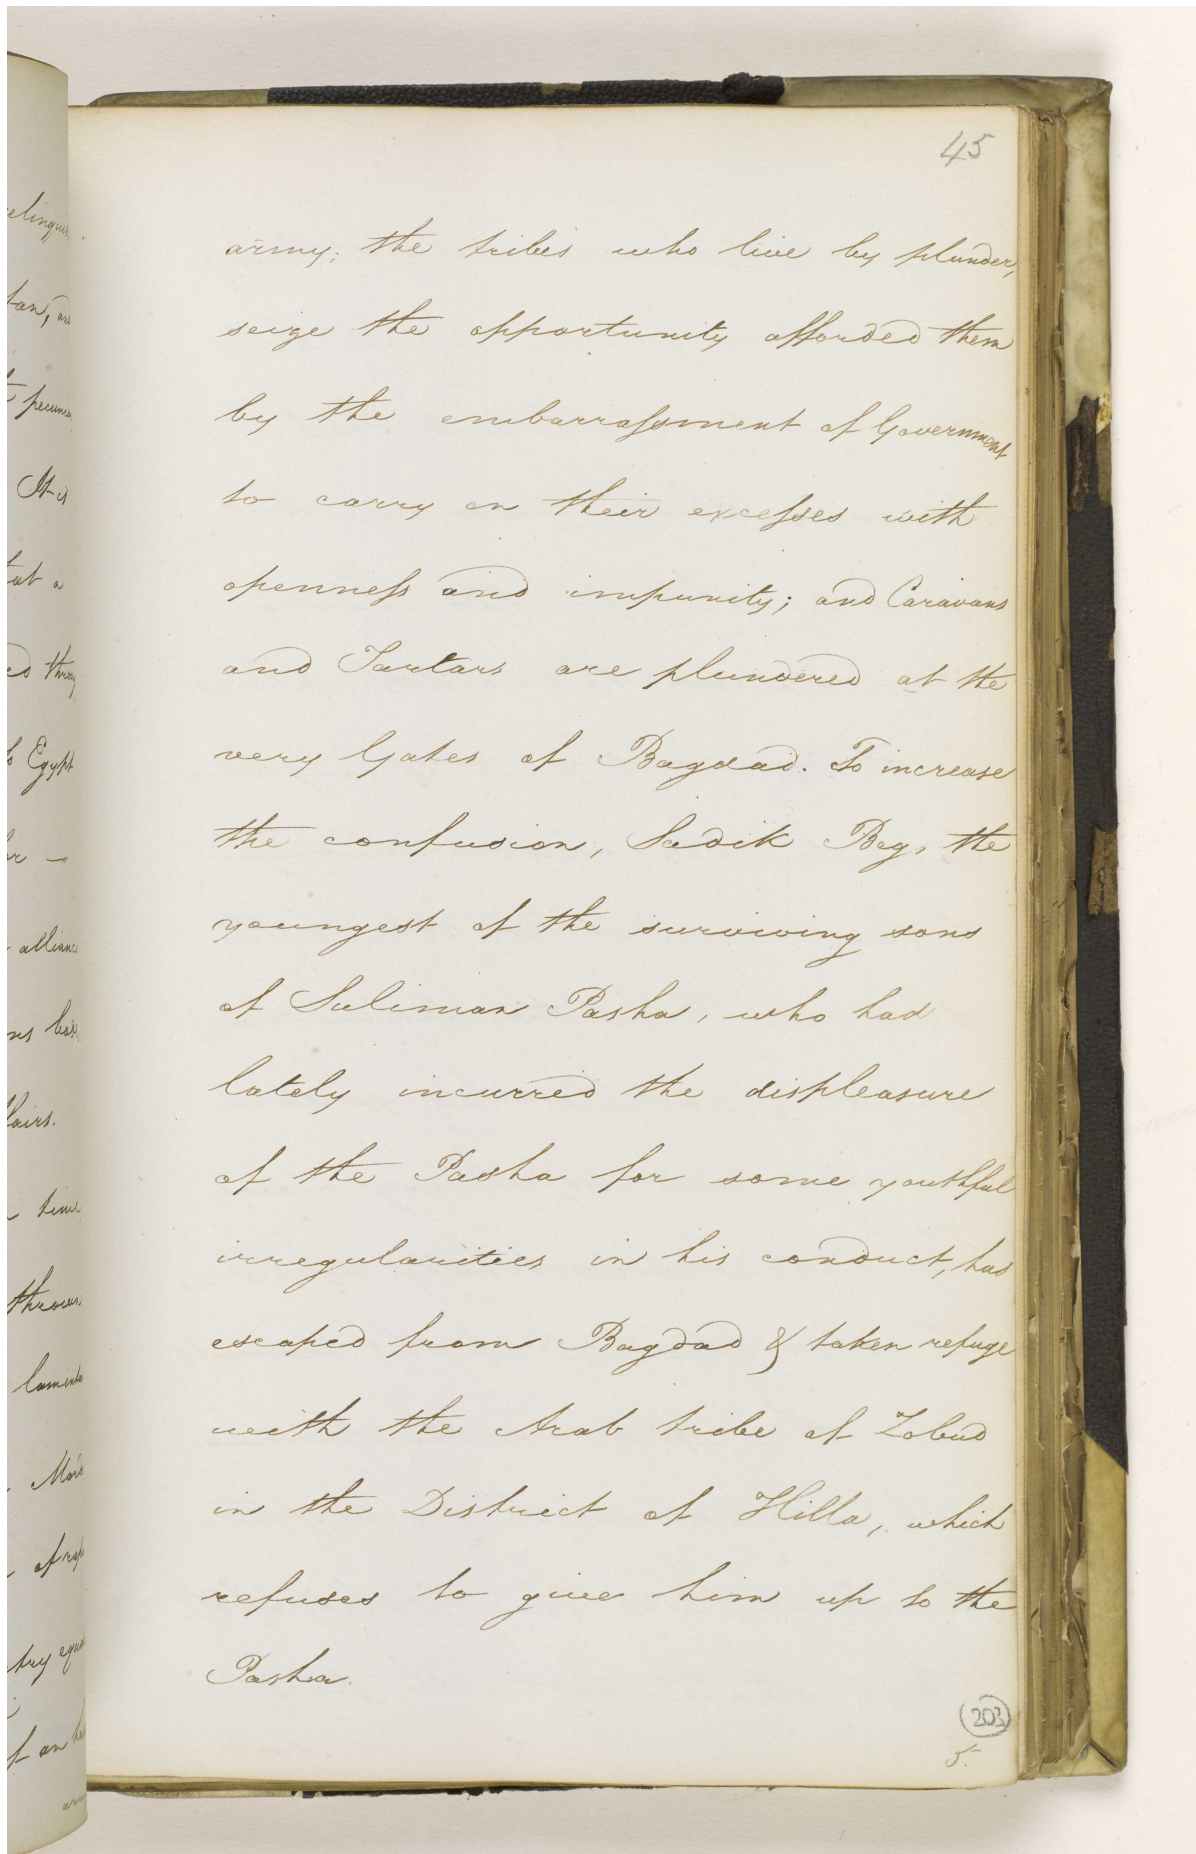 45
army; the tribes who live by plunder,
seize the opportunity afforded them
by the embarrassment of Government
to carry on their excesses with
openness and impunity; and Caravans
and Tartars are plundered at the
very Gates of Bagdad. To increase
the confusion, Sadik Beg, the
youngest of the surviving sons
of Suliman Pasha, who had
lately incurred the displeasure
of the Pasha for some youthful
irregularities in his conduct, has
escaped from Bagdad & taken refuge
with the Arab tribe of Zobeid
in the District of Hilla, which
refuses to give him up to the
Pasha.
203
5.
tan, and
It is
tat a
to Egypt
alliance
time
thrown